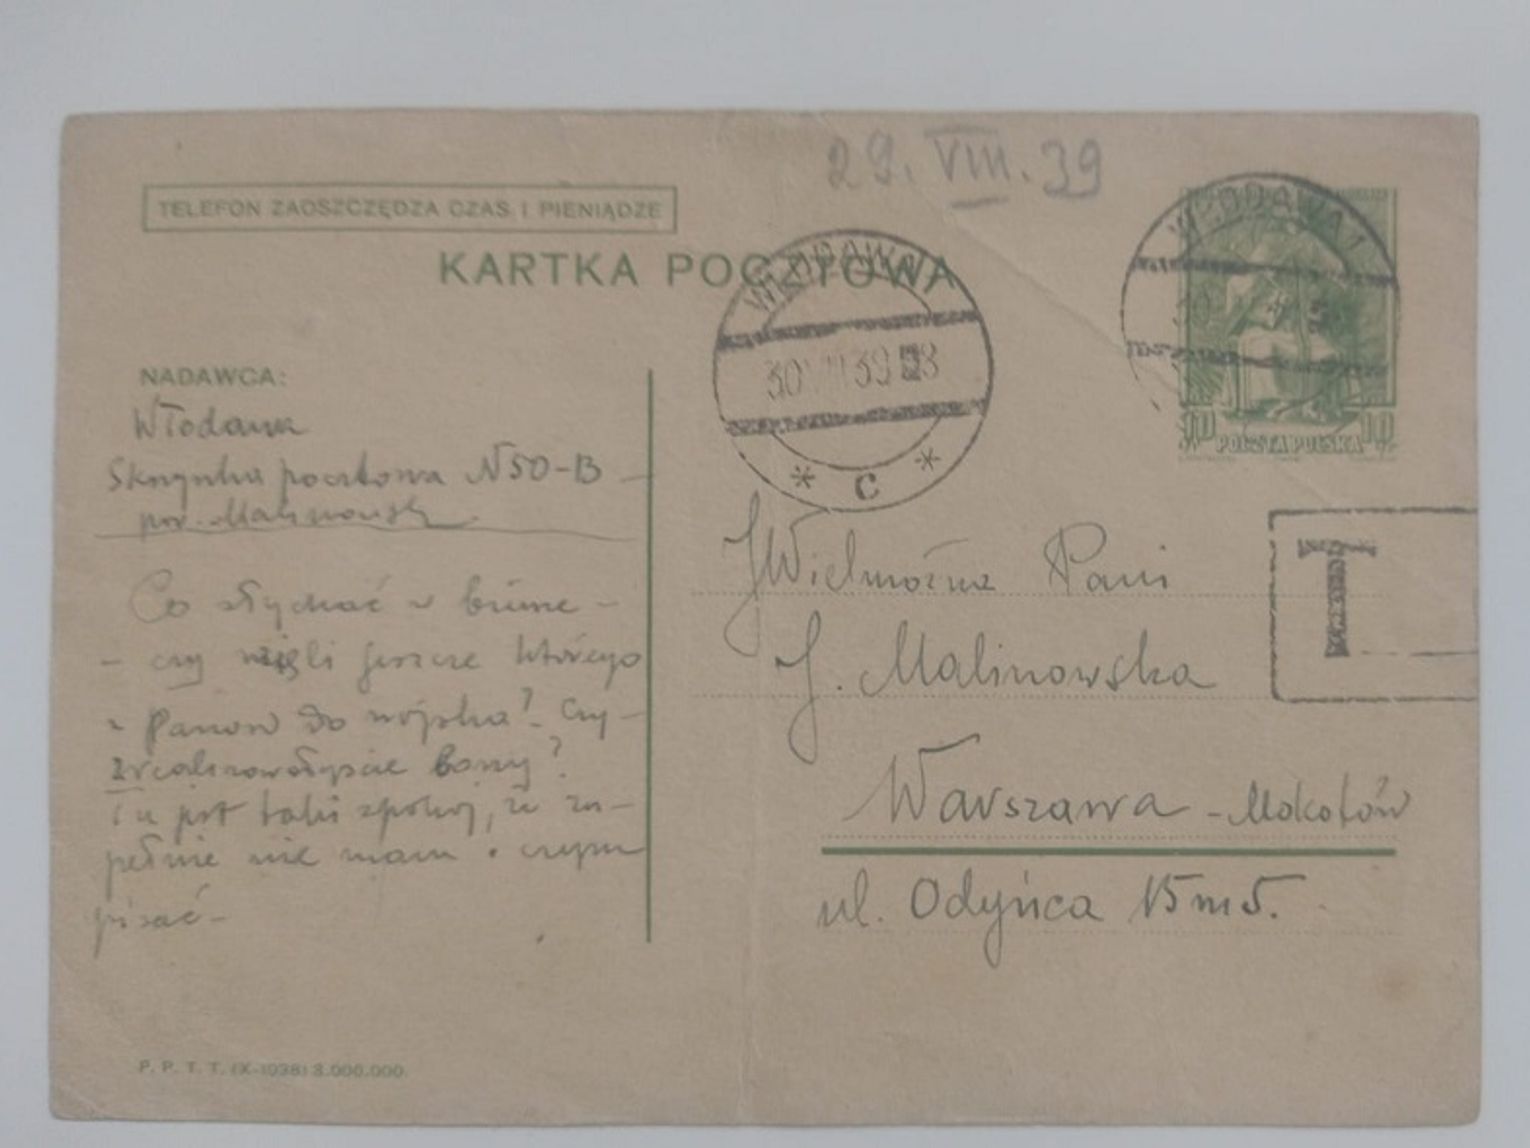 29. VIII. 39
TELEFON ZAOSZCZĘDZA CZAS I PIENIĄDZE
KARTKA POCZTOWA
WŁODAWA
30 VIII 39
* C *
WŁODAWA 1
10 POCZTA POLSKA 10
NADAWCA:
Włodawa
Skrynka pocztowa N50-B
por. Malinowski
Co słychać w biurze -
- czy wzięli jeszcze którego
Panow do wojska? - Czy -
zrealizowałyście bony?
Tu jest taki spokój, że zu-
pełnie nie mam czym
pisać -
T
JWielmożna Pani
J. Malinowska
Warszawa - Mokotów
ul. Odyńca 15 m 5.
P. P. T. T. (X-1938) 3.000.000.